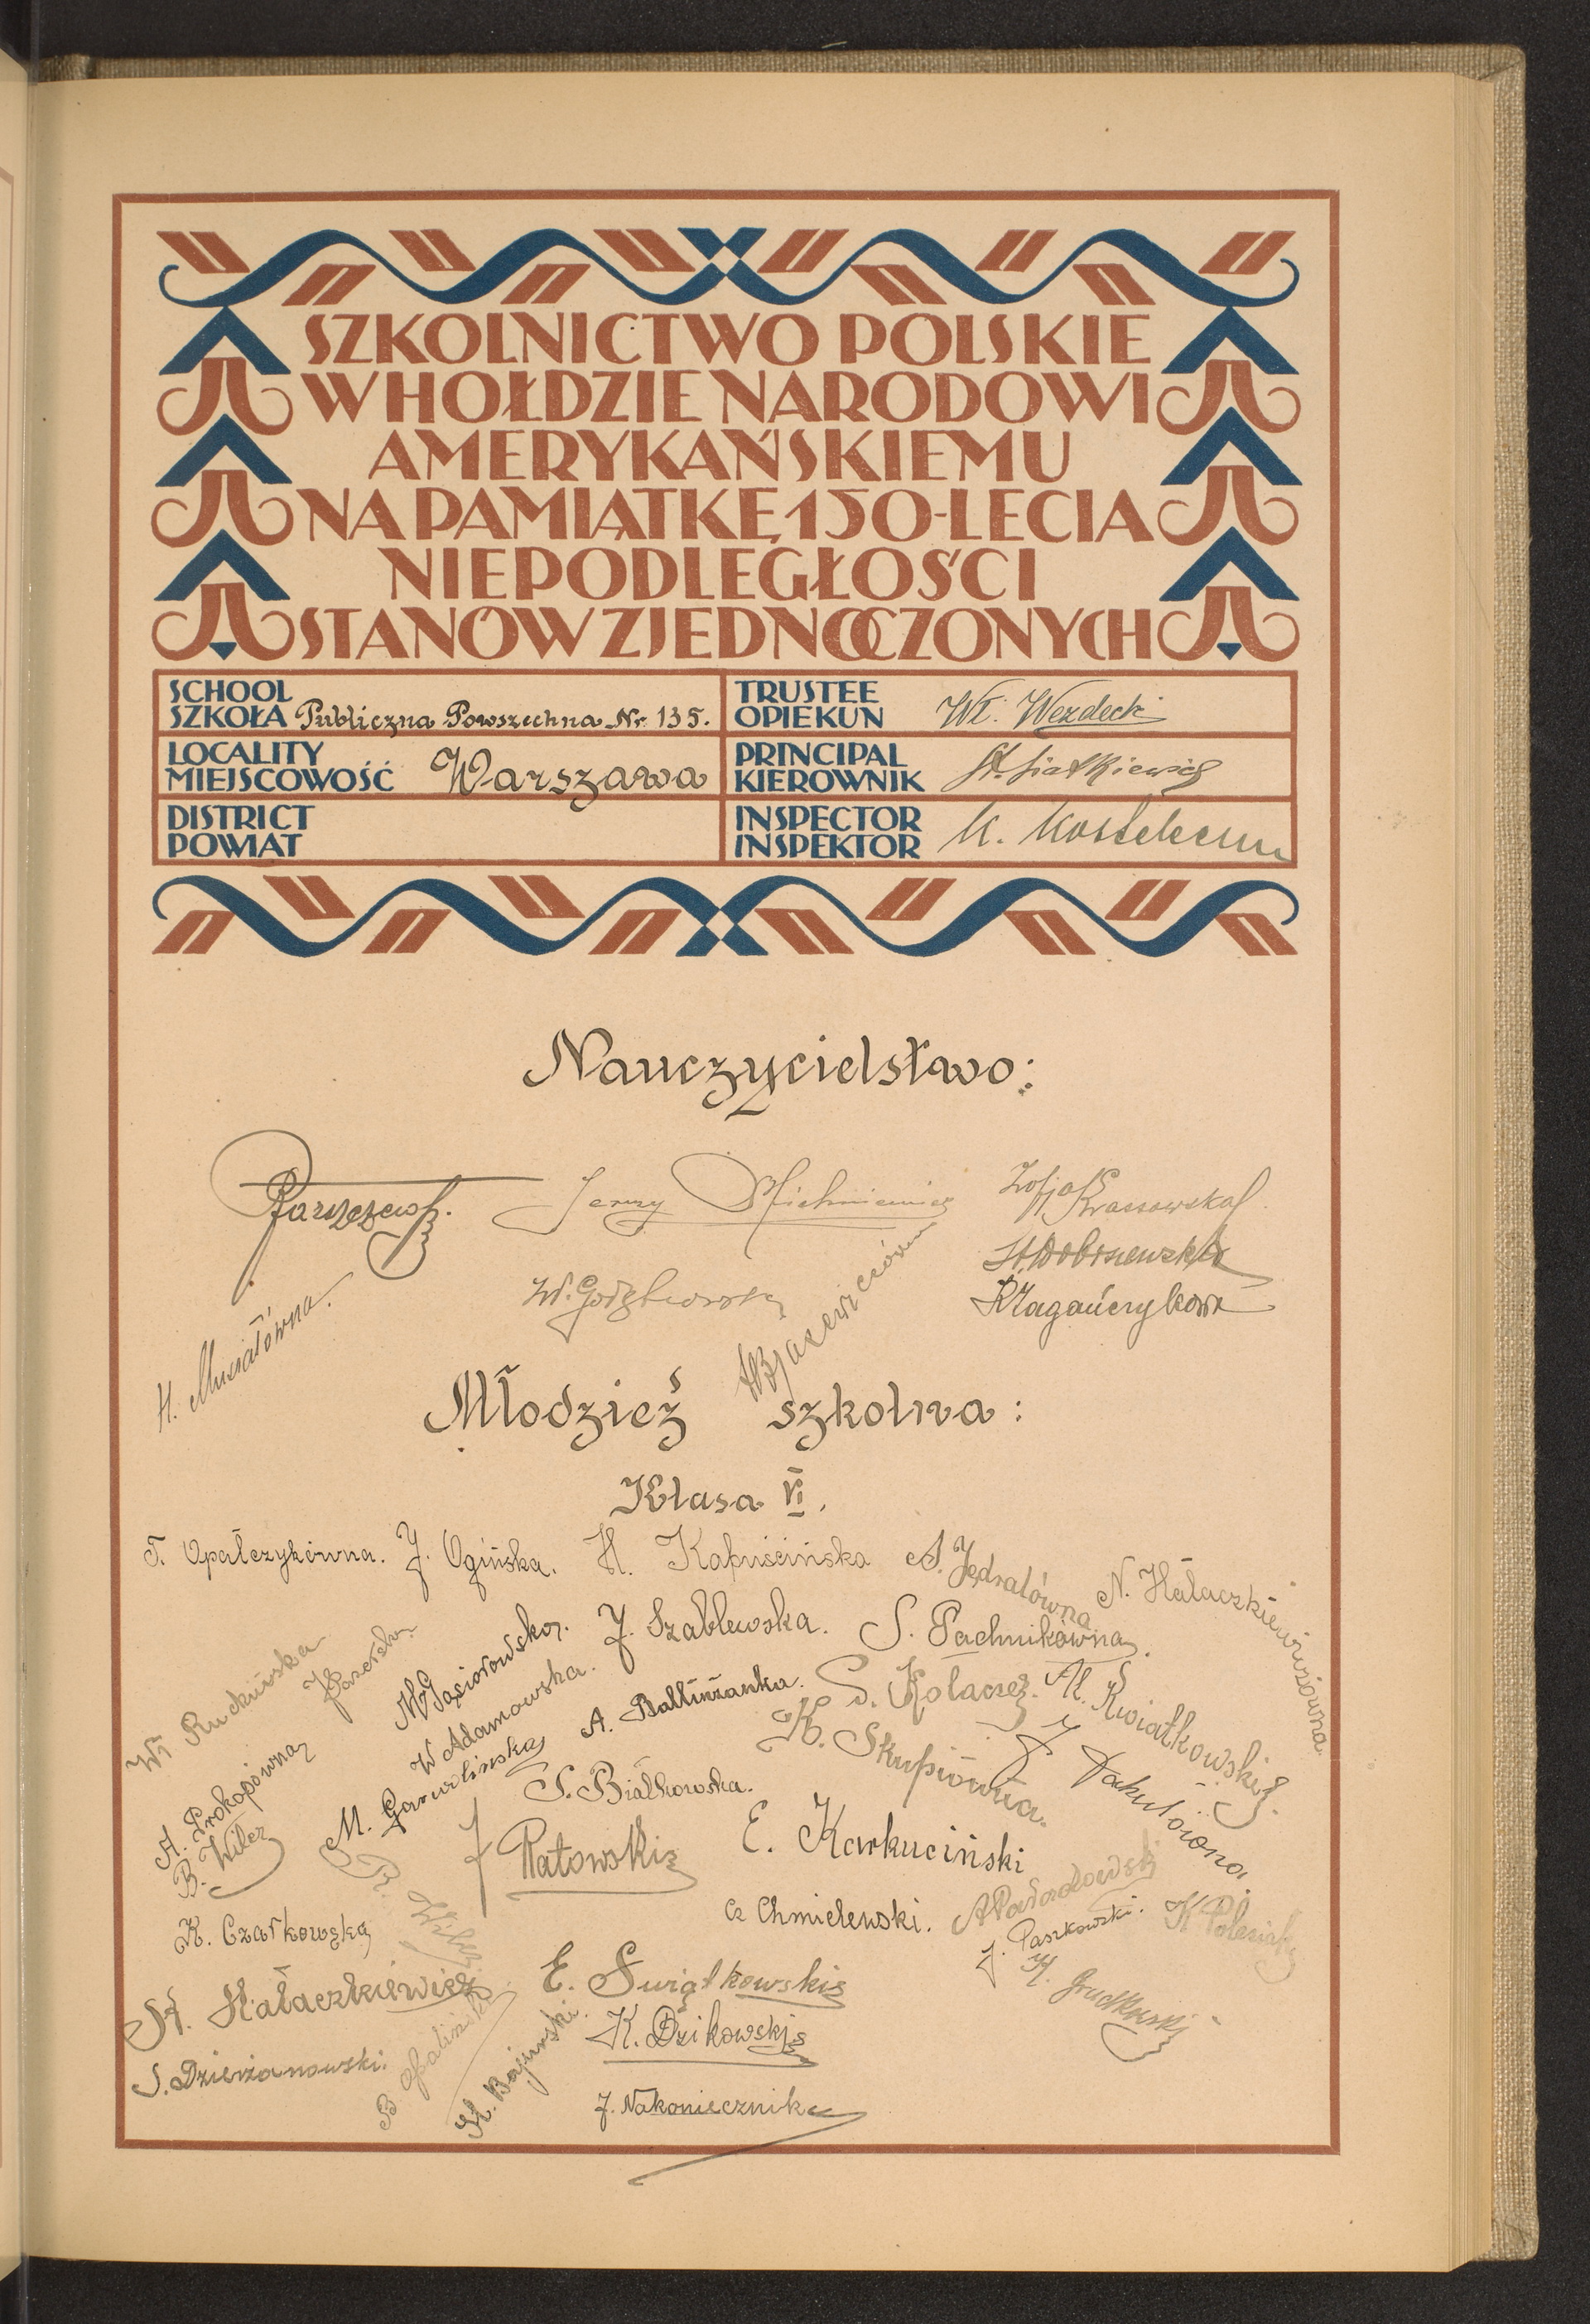 SZKOLNICTWO POLSKIE
W HOŁDZIE NARODOWI
AMERYKAŃSKIEMU
NA PAMIĄTKĘ 150-LECIA
NIEPODLEGŁOŚCI
STANÓW ZJEDNOCZONYCH
SCHOOL
SZKOŁA Publiczna Powszechna Nr. 135.
TRUSTEE
OPIEKUN Wł. Wezdecki
LOCALITY
MIEJSCOWOŚĆ Warszawa
PRINCIPAL
KIEROWNIK St. Siatkiewicz
DISTRICT
POWIAT
INSPECTOR
INSPEKTOR K.
Nauczycielstwo:
Jerzy Michniewicz
Zofja Krassowska
St. Dobrzewska
H. Musiałówna.
Młodzież szkolna:
Klasa VI.
T. Opalczykówna. J. Ogińska. H. Kapuścińska A. Jędralówna N. Hałaczkiewiczówna
Wł Rucińska
M Gąsiorowska. J. Szablewska. S. Pachnikówna.
W Adamowska. A. Baltuszanka. S. Kołacz. M. Kwiatkowski.
A. Prokopówna M. Garwolińska S. Białkowska. K. Skupiówna. J Jakutówna
B. Wilez J Ratowski E. Karkuciński
K. Czarkowska Cz Chmielewski. J. Paszkowski. K Polesiak
St. Hałaczkiewicz E. Świątkowski H. Grudkowski
S. Dzierżanowski. K. Dzikowski
B Galiński St. Bojarski
J. Nakoniecznik